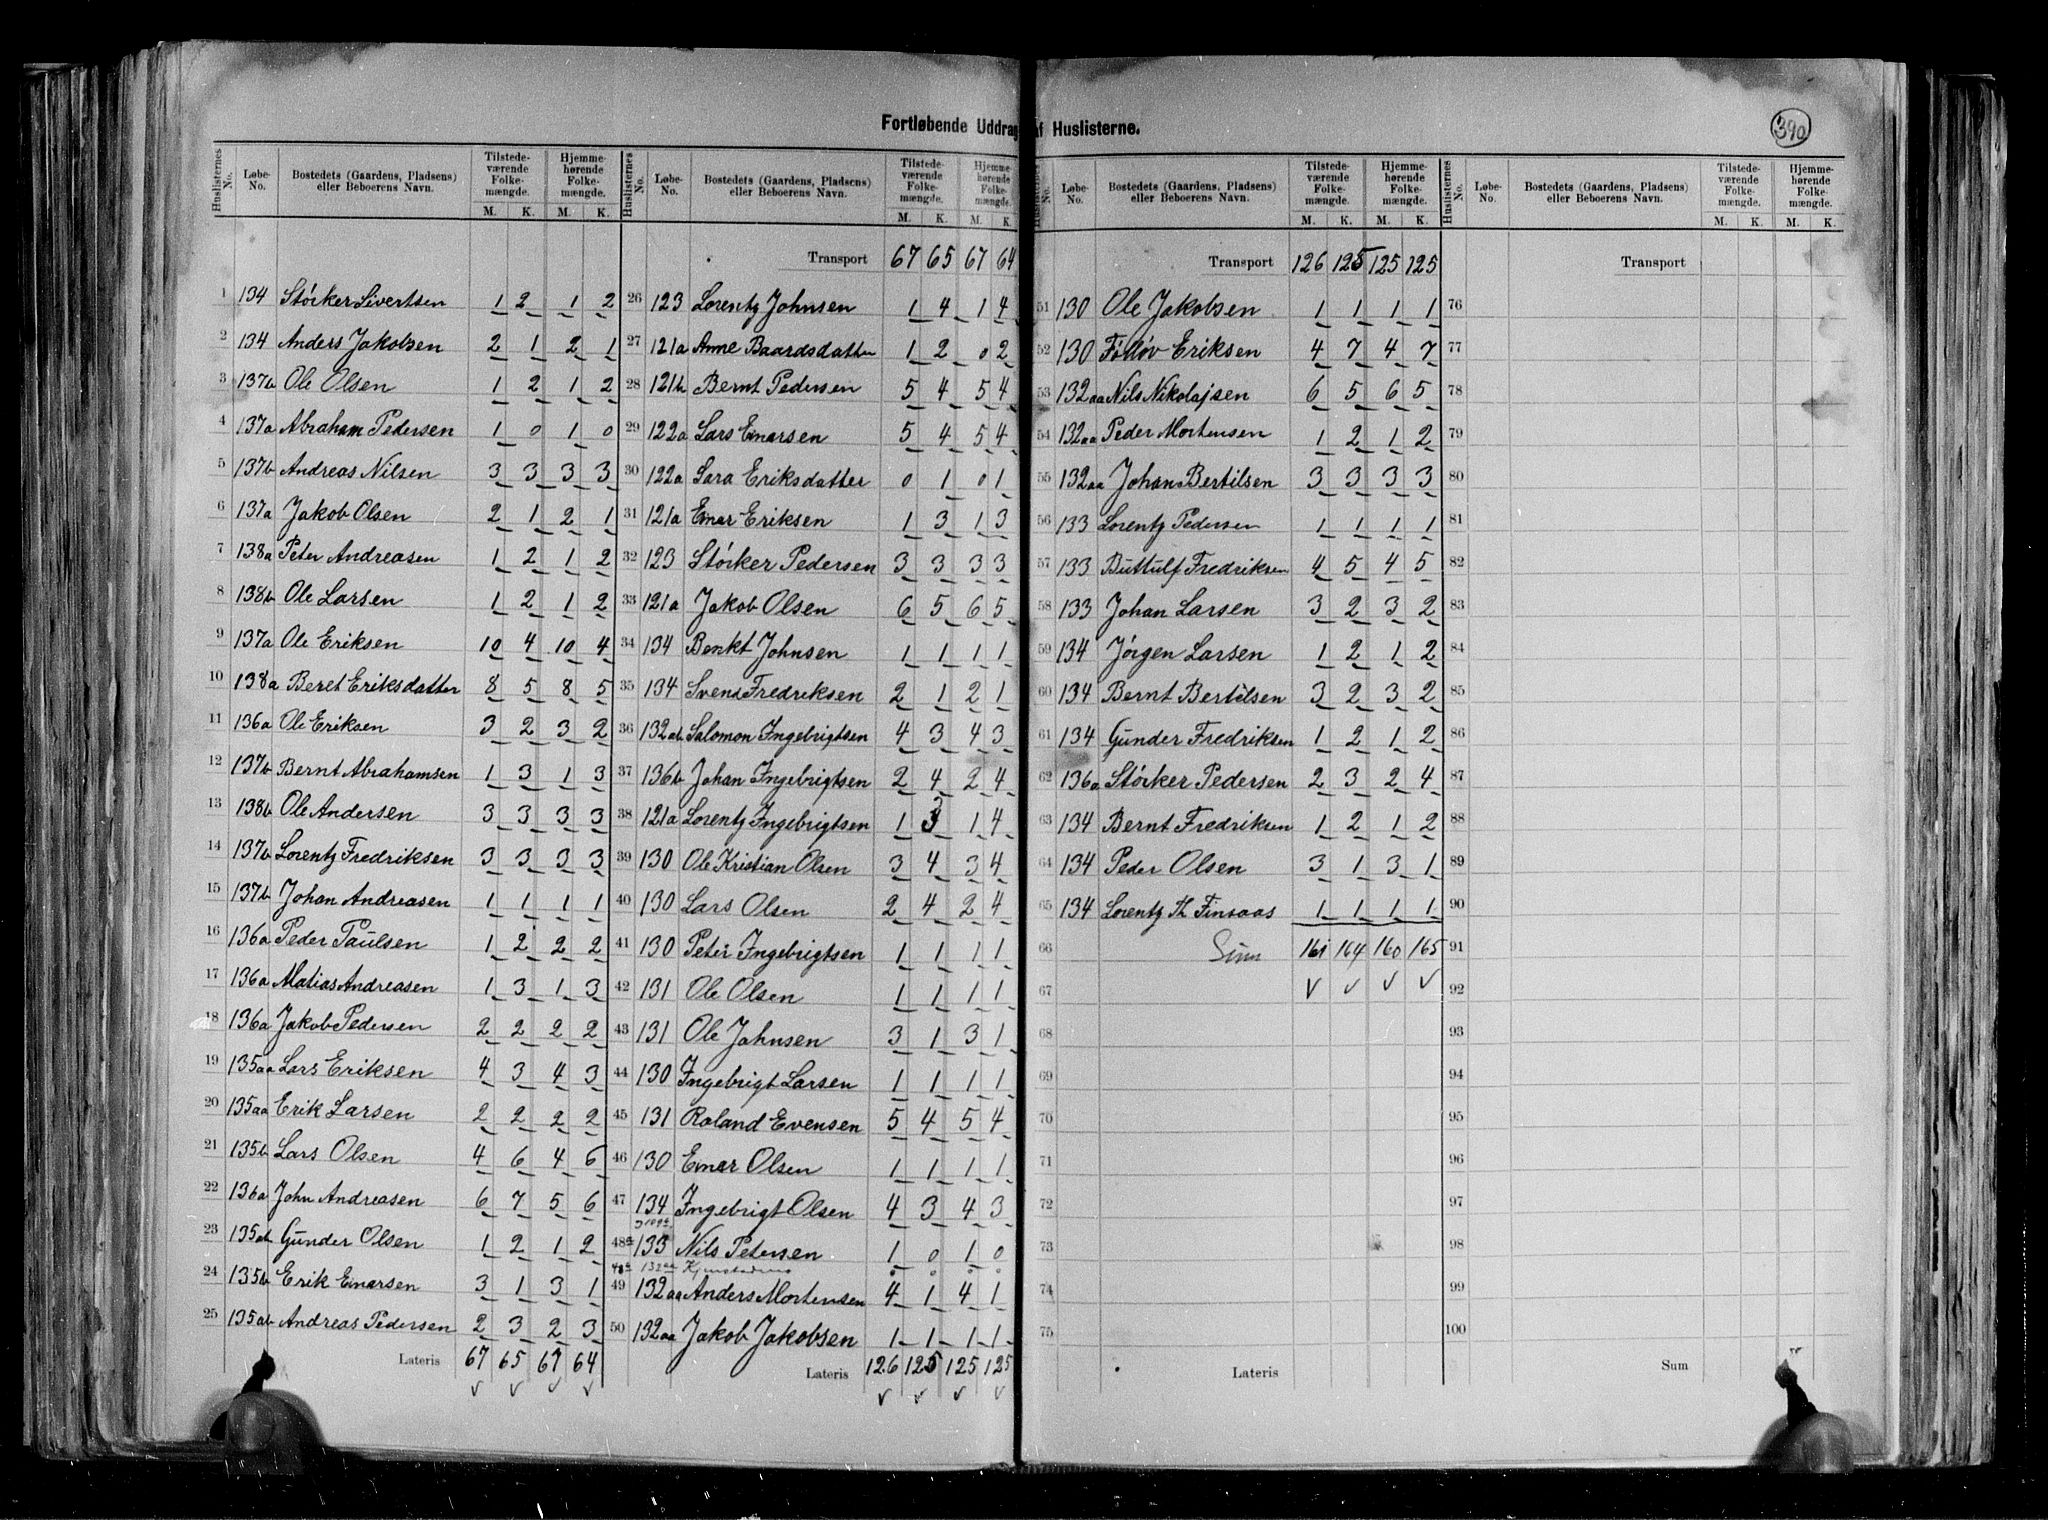 Fortløbende Uddrag af Huslisterne.
390
Huslisternes No. Løbe-No. Bostedets (Gaardens, Pladsens) eller Beboerens Navn. Tilstedeværende Folkemængde. M. K. Hjemmehørende Folkemængde. M. K.
1 134 Störker Sivertsen 1 2 1 2
2 134 Anders Jakobsen 2 1 2 1
3 137b Ole Olsen 1 2 1 2
4 137a Abraham Pedersen 1 0 1 0
5 137b Andreas Nilsen 3 3 3 3
6 137a Jakob Olsen 2 1 2 1
7 138a Peter Andreasen 1 2 1 2
8 138b Ole Larsen 1 2 1 2
9 137a Ole Eriksen 10 4 10 4
10 138a Beret Eriksdatter 8 5 8 5
11 136a Ole Eriksen 3 2 3 2
12 137b Bernt Abrahamsen 1 3 1 3
13 138b Ole Andersen 3 3 3 3
14 137b Lorentz Fredriksen 3 3 3 3
15 137b Johan Andreasen 1 1 1 1
16 136a Peder Paulsen 1 2 2 2
17 136a Matias Andreasen 1 3 1 3
18 136a Jakob Pedersen 2 2 2 2
19 135aa Lars Eriksen 4 3 4 3
20 135aa Erik Larsen 2 2 2 2
21 135b Lars Olsen 4 6 4 6
22 136a John Andreasen 6 7 5 6
23 135ab Gunder Olsen 1 2 1 2
24 135b Erik Einarsen 3 1 3 1
25 135ab Andreas Pedersen 2 3 2 3
Lateris 67 65 67 64
Huslisternes No. Løbe-No. Bostedets (Gaardens, Pladsens) eller Beboerens Navn. Tilstedeværende Folkemængde. M. K. Hjemmehørende Folkemængde. M. K.
Transport 67 65 67 64
26 123 Lorentz Johnsen 1 4 1 4
27 121a Anne Baardsdatter 1 2 0 2
28 121b Bernt Pedersen 5 4 5 4
29 122a Lars Einarsen 5 4 5 4
30 122a Sara Eriksdatter 0 1 0 1
31 121a Einar Eriksen 1 3 1 3
32 123 Störker Pedersen 3 3 3 3
33 121a Jakob Olsen 6 5 6 5
34 134 Benkt Johnsen 1 1 1 1
35 134 Svend Fredriksen 2 1 2 1
36 132ab Salomon Ingebrigtsen 4 3 4 3
37 136b Johan Ingebrigtsen 2 4 2 4
38 121a Lorentz Ingebrigtsen 1 3 1 4
39 130 Ole Kristian Olsen 3 4 3 4
40 130 Lars Olsen 2 4 2 4
41 130 Peter Ingebrigtsen 1 1 1 1
42 131 Ole Olsen 1 1 1 1
43 131 Ole Johnsen 3 1 3 1
44 130 Ingebrigt Larsen 1 1 1 1
45 131 Roland Evensen 5 4 5 4
46 130 Einar Olsen 1 1 1 1
47 134 Ingebrigt Olsen 4 3 4 3
48a 133 Nils Petersen 1 0 1 0
132aa 0 0 0 0
49 132aa Anders Mortensen 4 1 4 1
50 132aa Jakob Jakobsen 1 1 1 1
Lateris 126 125 125 125
Huslisternes No. Løbe-No. Bostedets (Gaardens, Pladsens) eller Beboerens Navn. Tilstedeværende Folkemængde. M. K. Hjemmehørende Folkemængde. M. K.
Transport 126 125 125 125
51 130 Ole Jakobsen 1 1 1 1
52 130 Eriksen 4 7 4 7
53 132aa Nils Nikolajsen 6 5 6 5
54 132aa Peder Mortensen 1 2 1 2
55 132aa Johan Bertilsen 3 3 3 3
56 133 Lorentz Pedersen 1 1 1 1
57 133 Buttulf Fredriksen 4 5 4 5
58 133 Johan Larsen 3 2 3 2
59 134 Jörgen Larsen 1 2 1 2
60 134 Bernt Bertilsen 3 2 3 2
61 134 Gunder Fredriksen 1 2 1 2
62 136a Störker Pedersen 2 3 2 4
63 134 Bernt Fredriksen 1 2 1 2
64 134 Peder Olsen 3 1 3 1
65 134 Lorentz Th Finsaas 1 1 1 1
66 Sum 161 164 160 165
67
68
69
70
71
72
73
74
75
Lateris
Huslisternes No. Løbe-No. Bostedets (Gaardens, Pladsens) eller Beboerens Navn. Tilstedeværende Folkemængde. M. K. Hjemmehørende Folkemængde. M. K.
Transport
76
77
78
79
80
81
82
83
84
85
86
87
88
89
90
91
92
93
94
95
96
97
98
99
100
Sum